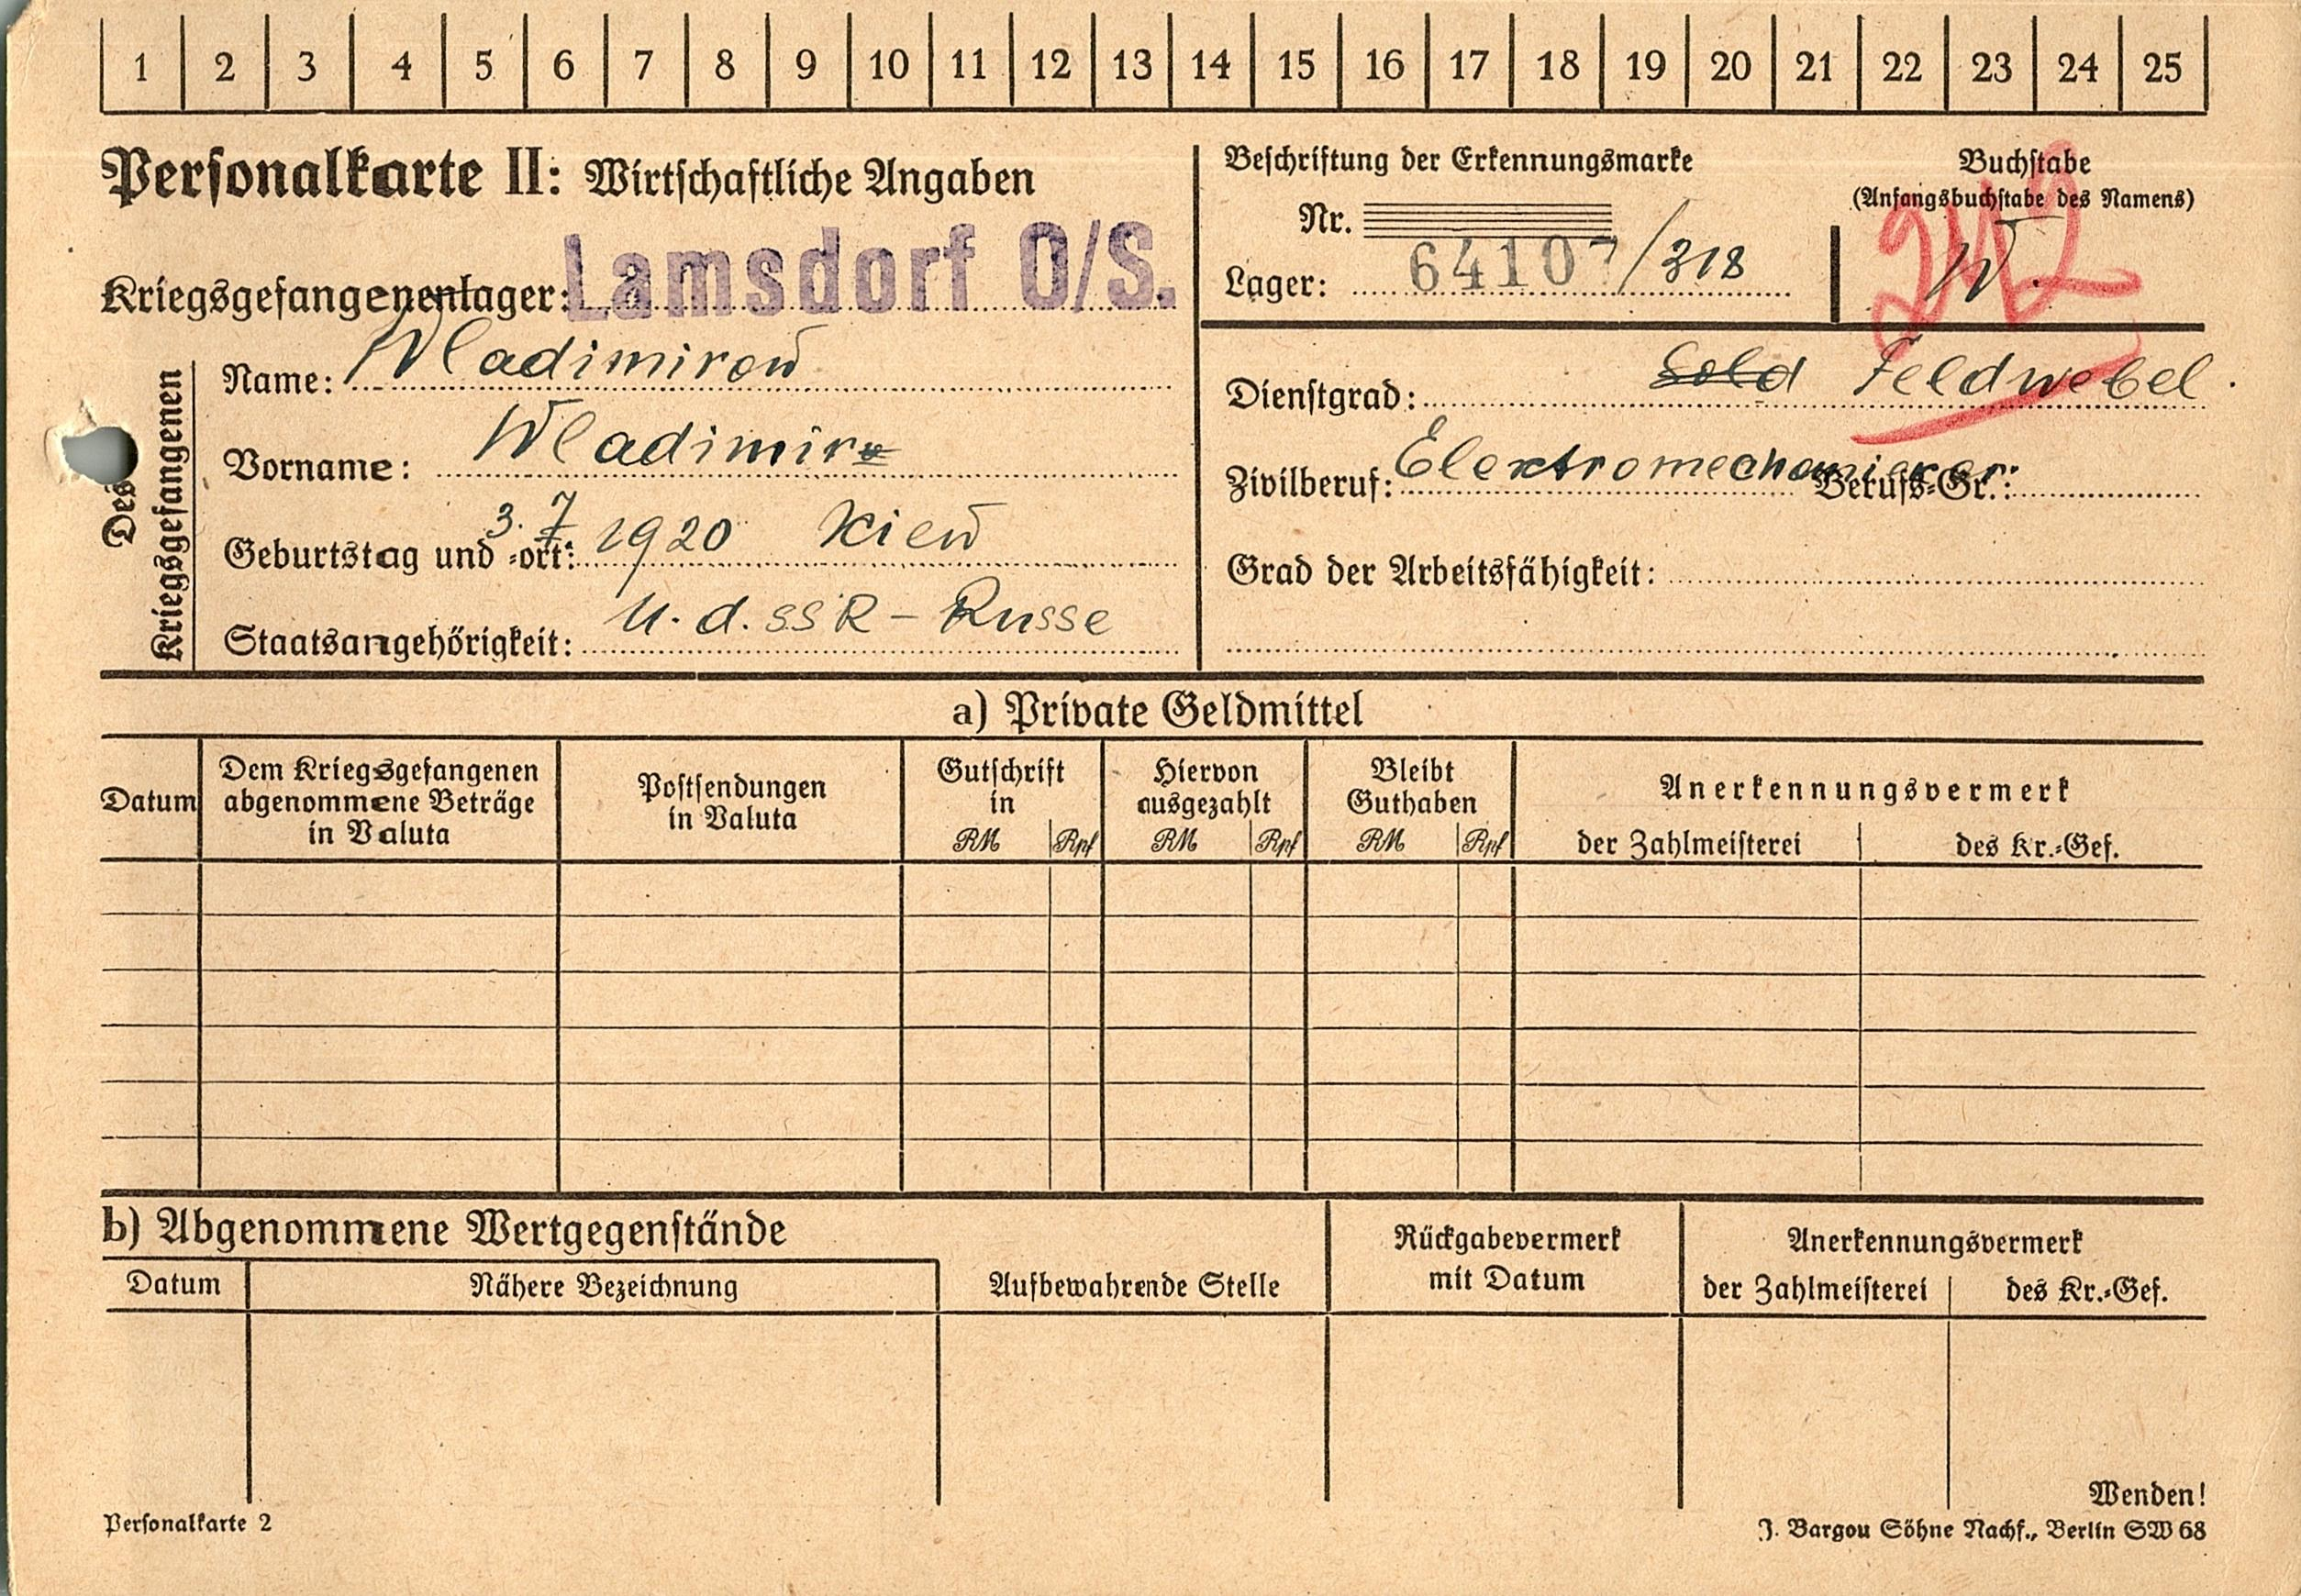 1 2 3 4 5 6 7 8 9 10 11 12 13 14 15 16 17 18 19 20 21 22 23 24 25
Personalkarte II: Wirtschaftliche Angaben
Kriegsgefangenenlager: Lamsdorf O/S.
Beschriftung der Erkennungsmarke
Nr. 64107/318
Lager:
Buchstabe
(Anfangsbuchstabe des Namens)
W.
242
Des Kriegsgefangenen
Name: Wladimirow
Vorname: Wladimir
Geburtstag und -ort: 3. 7 1920 Kiew
Staatsangehörigkeit: U. d. SSR - Russe
Dienstgrad: Sold Feldwebel.
Zivilberuf: Elektromechaniker Berufs-Gr.:
Grad der Arbeitsfähigkeit:
a) Private Geldmittel
Datum
Dem Kriegsgefangenen
abgenommene Beträge
in Valuta
Postsendungen
in Valuta
Gutschrift
in
RM Rpf
Hiervon
ausgezahlt
RM Rpf
Bleibt
Guthaben
RM Rpf
Anerkennungsvermerk
der Zahlmeisterei des Kr.-Gef.
b) Abgenommene Wertgegenstände
Datum Nähere Bezeichnung Aufbewahrende Stelle
Rückgabevermerk
mit Datum
Anerkennungsvermerk
der Zahlmeisterei des Kr.-Gef.
Wenden!
Personalkarte 2
J. Bargou Söhne Nachf., Berlin SW 68